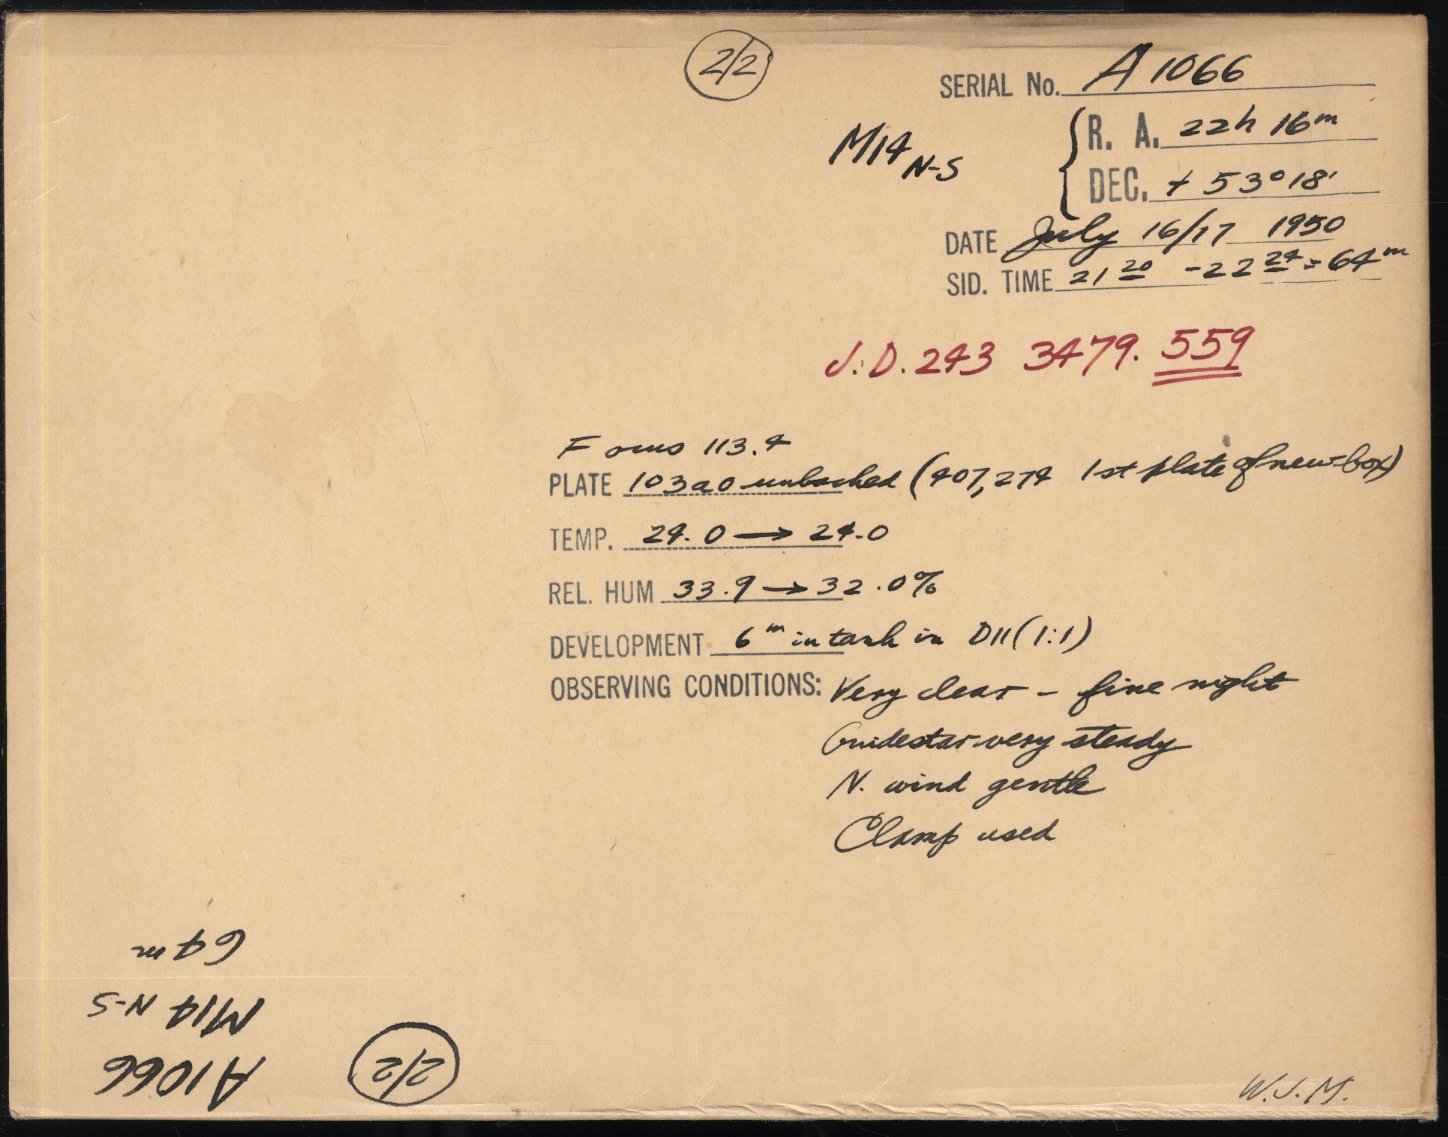 2/2
SERIAL No. A 1066
M14 N-S
R. A. 22h 16m
DEC. + 53° 18'
DATE July 16/17 1950
SID. TIME 21 20 - 22 24 = 64m
J.D. 243 3479. 559
Focus 113.4
PLATE 103aO unbacked (407,274 1st plate of new box)
TEMP. 24.0 → 24.0
REL. HUM 33.9 → 32.0%
DEVELOPMENT 6m in tank in D11 (1:1)
OBSERVING CONDITIONS: Very clear - fine night
Guidestar very steady
N. wind gentle
Clamp used
64m
M14 N-S
A1066
2/2
W.J.M.